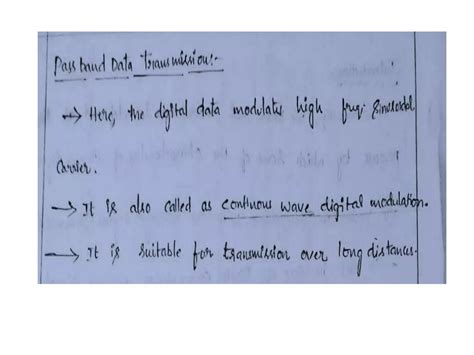 Pass band Data Transmission:-
→ Here, the digital data modulates high freq sinosoidal
Carrier.
→ It is also called as continous wave digital modulation.
→ It is suitable for transmission over long distances.